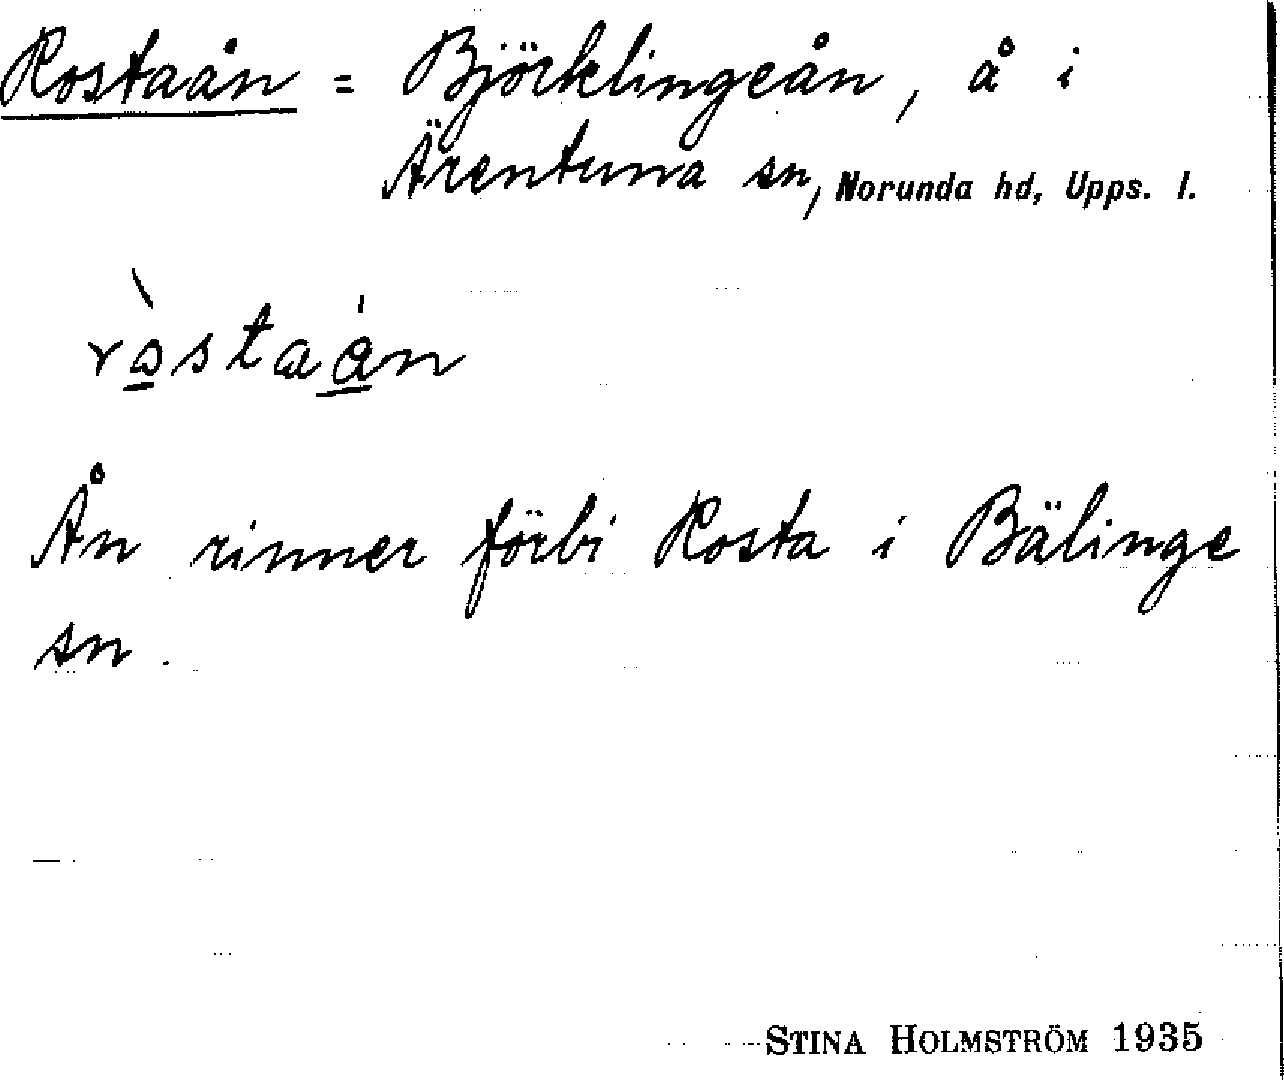 Rostaån = Björklingeån, å i
Ärentuna sn, Norunda hd, Upps. l.
Ån rinner förbi Rosta i Bälinge
sn.
STINA HOLMSTRÖM 1935